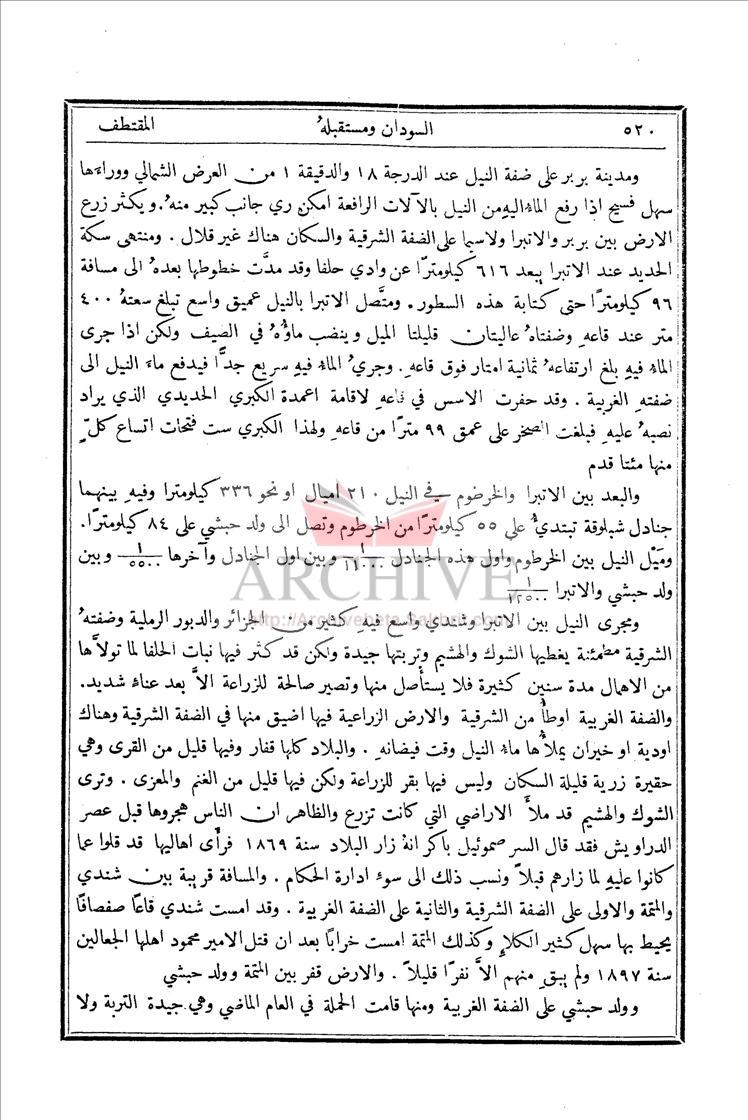 ٥٢٠ السودان ومستقبلهُ المقتطف
ومدينة بربر على ضفة النيل عند الدرجة ١٨ والدقيقة ١ من العرض الشمالي ووراءَها
سهل فسيح اذا رفع الماءُ اليهِ من النيل بالآلات الرافعة امكن ري جانب كبير منهُ. ويكثر زرع
الارض بين بربر والاتبرا ولاسيما على الضفة الشرقية والسكان هناك غير قلال . ومنتهى سكة
الحديد عند الاتبرا يبعد ٦١٦ كيلومترًا عن وادي حلفا وقد مدَّت خطوطها بعدهُ الى مسافة
٩٦ كيلومترًا حتى كتابة هذه السطور . ومتَّصل الاتبرا بالنيل عميق واسع تبلغ سعتهُ ٤٠٠
متر عند قاعهِ وضفتاهُ عاليتان قليلتا الميل وينضب ماؤُهُ في الصيف ولكن اذا جرى
الماءُ فيهِ بلغ ارتفاعهُ ثمانية امتار فوق قاعهِ . وجريُ الماءِ فيهِ سريع جدًّا فيدفع ماءَ النيل الى
ضفتهِ الغربية . وقد حفرت الاسس في قاعهِ لاقامة اعمدة الكبري الحديدي الذي يراد
نصبهُ عليهِ فبلغت الصخر على عمق ٩٩ مترًا من قاعهِ ولهذا الكبري ست فتحات اتساع كلّ
منها مئتا قدم
والبعد بين الاتبرا والخرطوم في النيل ٢١٠ اميال او نحو ٣٣٦ كيلومترا وفيهِ بينهما
جنادل شبلوقة تبتدئُ على ٥٥ كيلومترًا من الخرطوم وتصل الى ولد حبشي على ٨٤ كيلومترًا.
ومَيْل النيل بين الخرطوم واول هذه الجنادل ١/١١٠٠٠ وبين اول الجنادل وآخرها ١/٥٥٠٠ وبين
ولد حبشي والاتبرا ١/١٢٥٠٠
ARCHIVE
http://Archivebeta.Sakhrit.com
ومجرى النيل بين الاتبرا وشندي واسع فيهِ كثير من الجزائر والدبور الرملية وضفتهُ
الشرقية مطمئنة يغطيها الشوك والهشيم وتربتها جيدة ولكن قد كثر فيها نبات الحلفا لما تولاَّها
من الاهمال مدة سنين كثيرة فلا يستأصل منها وتصير صالحة للزراعة الاَّ بعد عناءٍ شديد.
والضفة الغربية اوطأُ من الشرقية والارض الزراعية فيها اضيق منها في الضفة الشرقية وهناك
اودية او خيران يملأُها ماءُ النيل وقت فيضانهِ . والبلاد كلها قفار وفيها قليل من القرى وهي
حقيرة زرية قليلة السكان وليس فيها بقر للزراعة ولكن فيها قليل من الغنم والمعزى . وترى
الشوك والهشيم قد ملأَ الاراضي التي كانت تزرع والظاهر ان الناس هجروها قبل عصر
الدراويش فقد قال السر صموئيل باكر انهُ زار البلاد سنة ١٨٦٩ فرأى اهاليها قد قلوا عما
كانوا عليهِ لما زارهم قبلاً ونسب ذلك الى سوء ادارة الحكام . والمسافة قريبة بين شندي
والمتمة والاولى على الضفة الشرقية والثانية على الضفة الغربية . وقد امست شندي قاعًا صفصافًا
يحيط بها سهل كثير الكلإِ وكذلك المتمة امست خرابًا بعد ان قتل الامير محمود اهلها الجعالين
سنة ١٨٩٧ ولم يبق منهم الاَّ نفرًا قليلاً . والارض قفر بين المتمة وولد حبشي
وولد حبشي على الضفة الغربية ومنها قامت الحملة في العام الماضي وهي جيدة التربة ولا